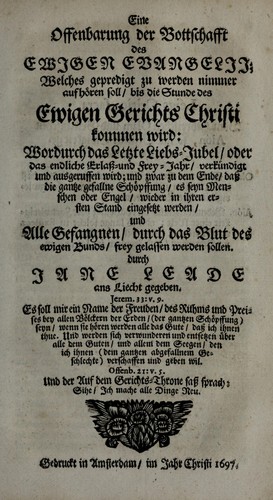 Eine
Offenbarung der Bottschafft
des
EWIGEN EVANGELII;
Welches gepredigt zu werden nimmer
aufhören soll / bis die Stunde des
Ewigen Gerichts Christi
kommen wird:
Wordurch das Letzte Liebs-Jubel / oder
das endliche Erlaß-und Frey-Jahr / verkündigt
und ausgeruffen wird; und zwar zu dem Ende / daß
die gantze gefallne Schöpffung / es seyn Men-
schen oder Engel / wieder in ihren er-
sten Stand eingesetzt werden /
und
Alle Gefangnen / durch das Blut des
ewigen Bunds / frey gelassen werden sollen.
durch
JANE LEADE
ans Liecht gegeben.
Jerem. 33: v. 9.
Es soll mir ein Name der Freuden / des Rühms und Prei-
ses bey allen Völckern der Erden / (der gantzen Schöpffung)
seyn / wenn sie hören werden alle das Gute / daß ich ihnen
thue. Und werden sich verwundern und entsetzen über
alle dem Guten / und allem dem Seegen / den
ich ihnen (dem gantzen abgefallnem Ge-
schlechte) verschaffen und geben wil.
Offenb. 21: v. 5.
Und der Auf dem Gerichts-Throne saß sprach:
Sihe / Ich mache alle Dinge Neu.
Gedruckt in Amsterdam / im Jahr Christi 1697.